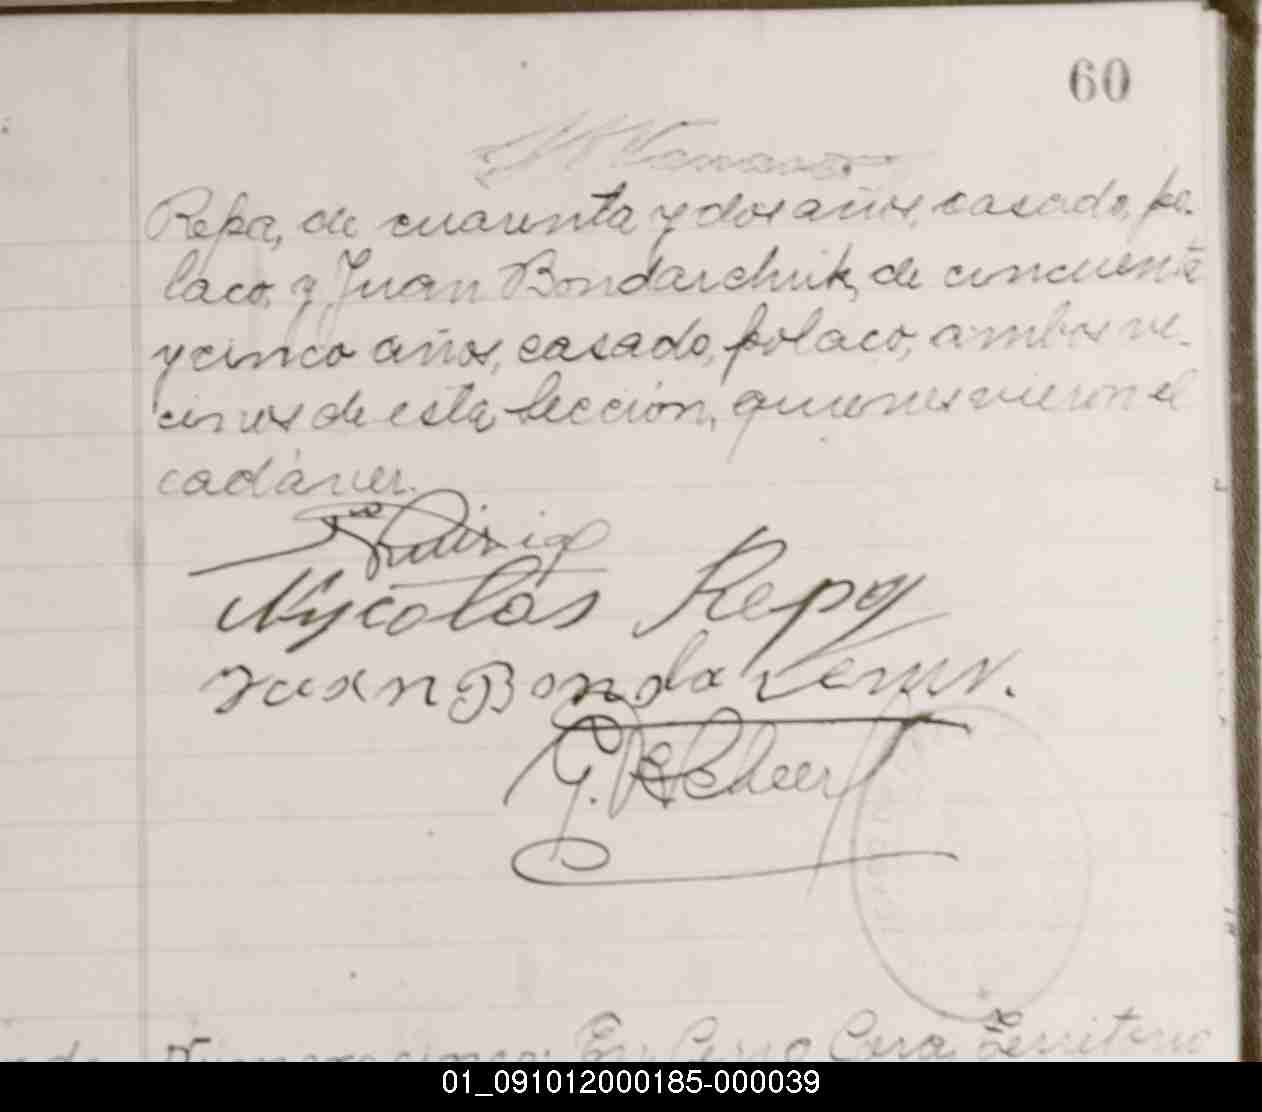 60
Repa, de cuarenta y dos años, casado, po-
laco, y Juan Bondarchuk, de cincuenta
y cinco años, casado, polaco, ambos ve-
cinos de esta sección, quienes vieron el
cadáver.
Nycolas Repa
Juan Bonda
G. Scheer
Cerro Cora, Territorio
01_091012000185-000039